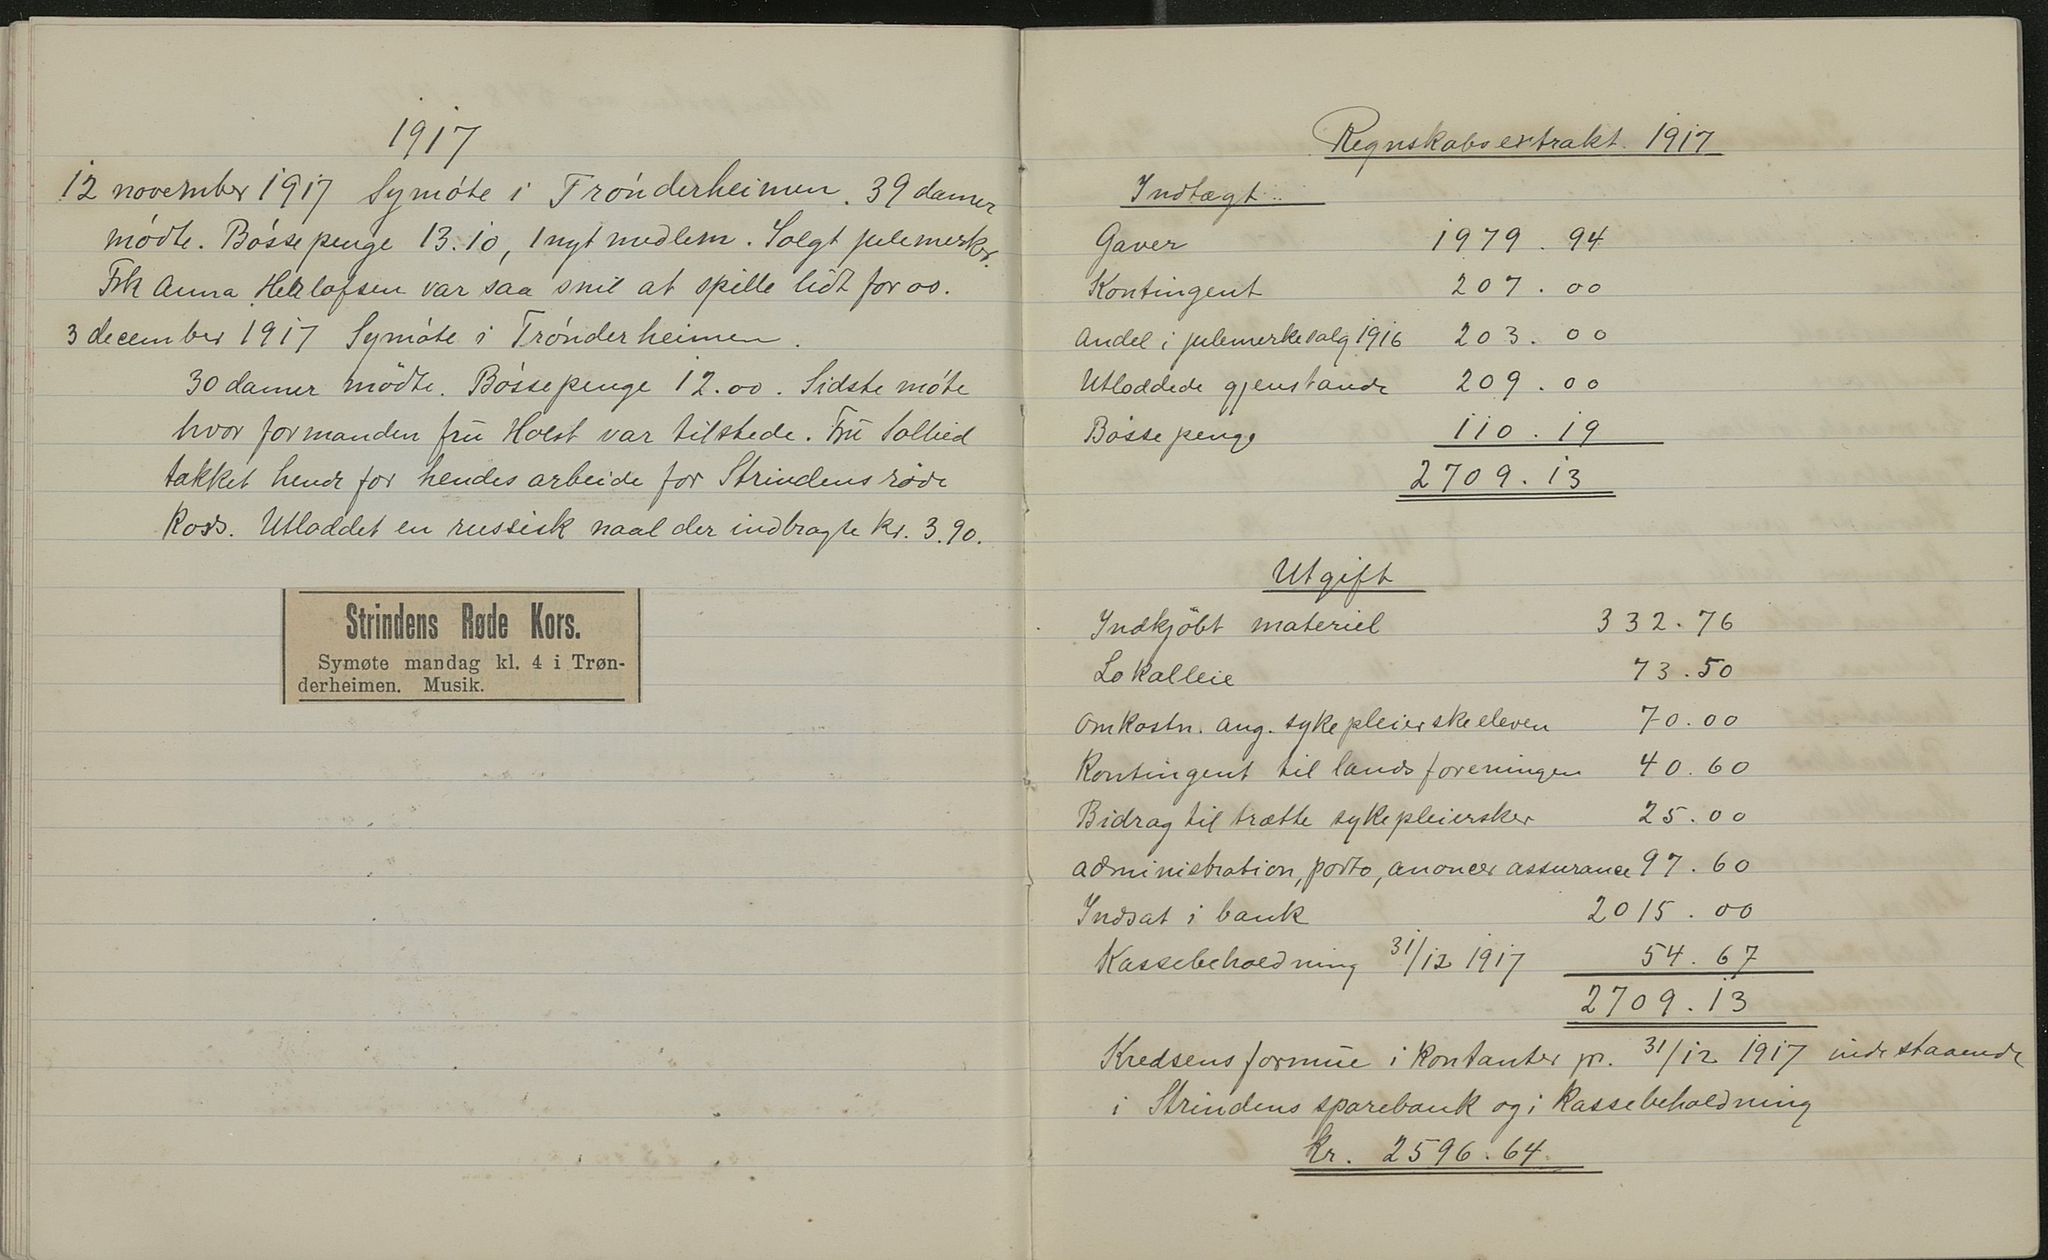 1917
12 november 1917 Symøte i Trønderheimen. 39 damer
mødte. Bøssepenge 13.10, 1 nyt medlem. Solgt julemerker.
Frk Anna Hellofsen var saa snil at spille lidt for os.
3 december 1917 Symøte i Trønderheimen.
30 damer mødte. Bøssepenge 12.00. Sidste møte
hvor formanden fru Holst var tilstede. Fru Solheid
takket hende for hendes arbeide for Strindens røde
Kors. Utloddet en russisk naal der indbragte kr. 3.90.
Strindens Røde Kors.
Symøte mandag kl. 4 i Trøn-
derheimen. Musik.
Regnskabsextrakt. 1917
Indtægt:
Gaver 1979.94
Kontingent 207.00
Andel i julemerkesalg 1916 203.00
Utloddede gjenstande 209.00
Bøssepenge 110.19
2709.13
Utgift
Indkjøbt materiel 332.76
Lokalleie 73.50
Omkostn. ang. sykepleierskeeleven 70.00
Kontingent til landsforeningen 40.60
Bidrag til trætte sykepleiersker 25.00
Administration, porto, anoncer assurance 97.60
Indsat i bank 2015.00
Kassebeholdning 31/12 1917 54.67
2709.13
Kredsens formue i kontanter pr. 31/12 1917 indestaaende
i Strindens sparebank og i kassebeholdning
Kr. 2596.64.